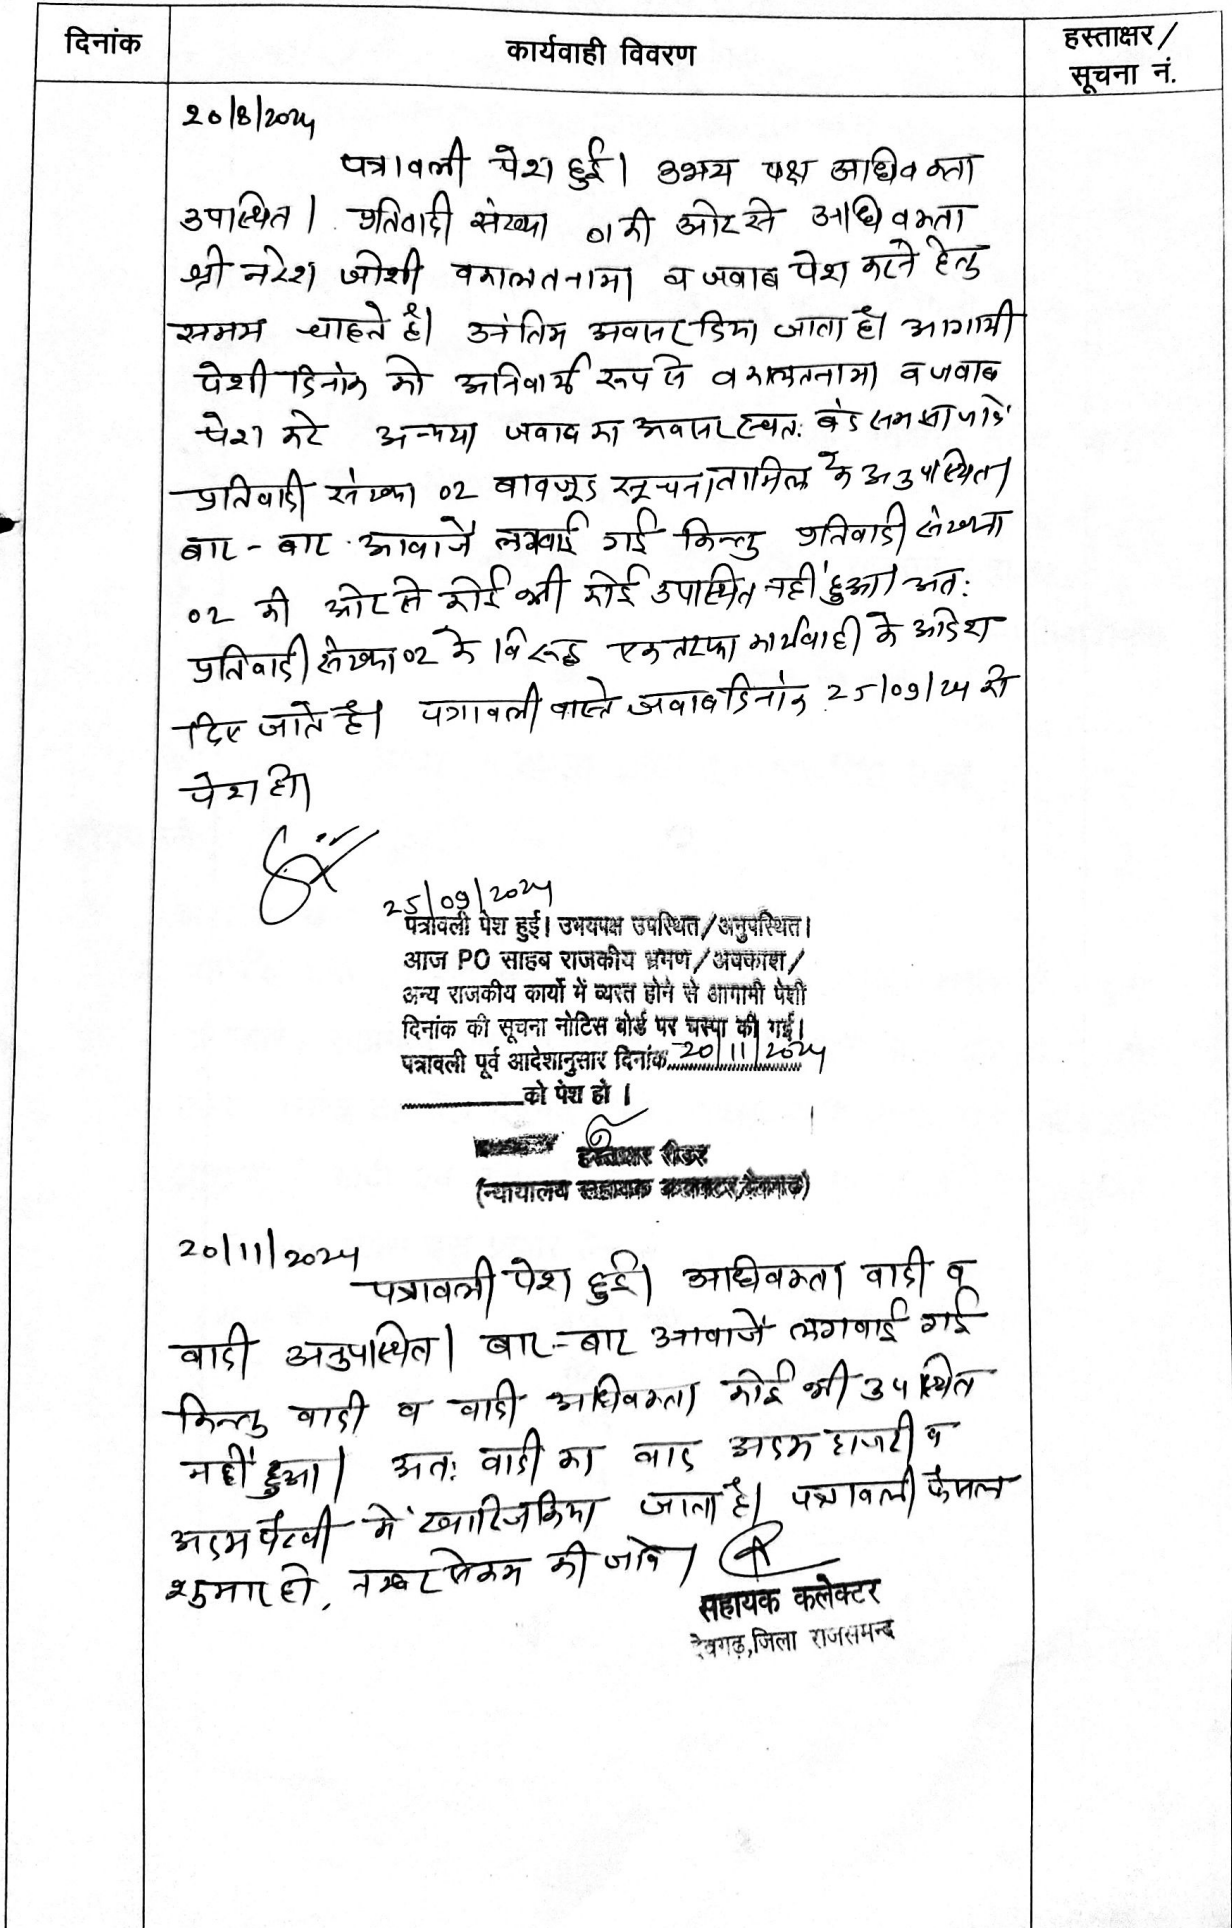 दिनांक
कार्यवाही विवरण
हस्ताक्षर /
सूचना नं.
20/8/2024
पत्रावली पेश हुई। उभय पक्ष अधिवक्ता
उपस्थित। प्रतिवादी संख्या 01 की ओर से अधिवक्ता
श्री नरेश जोशी वकालतनामा व जवाब पेश करने हेतु
समय चाहते है। अंतिम अवसर दिया जाता है। आगामी
पेशी दिनांक को अनिवार्य रूप से वकालतनामा व जवाब
पेश करे अन्यथा जवाब का अवसर स्वत: बंद समझा जावे
प्रतिवादी संख्या 02 बावजूद सूचना तामिल के अनुपस्थित।
बार - बार आवाजें लगवाई गई किन्तु प्रतिवादी संख्या
02 की ओर से कोई भी कोई उपस्थित नहीं हुआ। अत:
प्रतिवादी संख्या 02 के विरूद्ध एकतरफा कार्यवाही के आदेश
दिए जाते है। पत्रावली वास्ते जवाब दिनांक 25/09/24 को
पेश हो।
25/09/2024
पत्रावली पेश हुई। उभयपक्ष उपस्थित/अनुपस्थित।
आज PO साहब राजकीय भ्रमण/अवकाश/
अन्य राजकीय कार्यो में व्यस्त होने से आगामी पेशी
दिनांक की सूचना नोटिस बोर्ड पर चस्पा की गई।
पत्रावली पूर्व आदेशानुसार दिनांक 20/11/2024
को पेश हो ।
हस्ताक्षर रीडर
(न्यायालय सहायक कलक्टर, देवगढ)
20/11/2024
पत्रावली पेश हुई। अधिवक्ता वादी व
वादी अनुपस्थित। बार-बार आवाजें लगवाई गई
किन्तु वादी व वादी अधिवक्ता कोई भी उपस्थित
नहीं हुआ। अत: वादी का वाद अदम हाजरी व
अदम पैरवी में खारिज किया जाता है। पत्रावली फैसल
शुमार हो, नम्बर से कम की जावे।
सहायक कलेक्टर
देवगढ़,जिला राजसमन्द